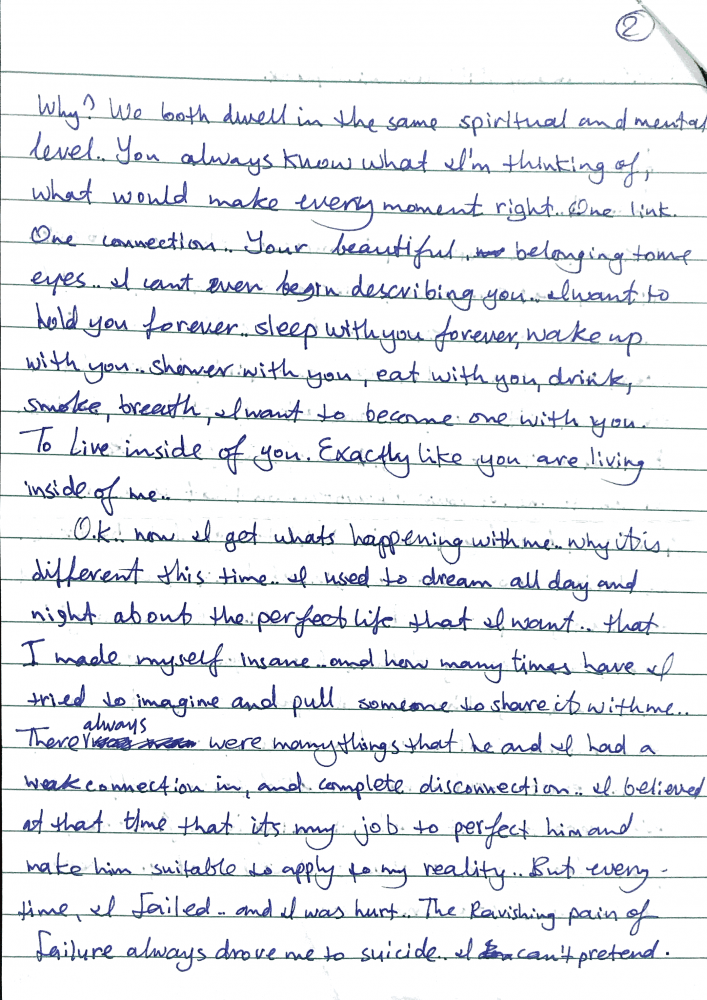 2
Why? We both dwell in the same spiritual and mental
level.. You always know what I'm thinking of,
what would make every moment right.. One link.
One connection.. Your beautiful, belonging to me
eyes.. I cant even begin describing you.. I want to
hold you forever.. sleep with you forever, wake up
with you.. shower with you, eat with you, drink,
smoke, breath, I want to become one with you.
To Live inside of you. Exactly like you are living
inside of me..
O.K.. now I get whats happening with me.. why it is
different this time.. I used to dream all day and
night about the perfect life that I want.. that
I made myself insane.. and how many times have I
tried to imagine and pull someone to share it with me..
always
There were many things that he and I had a
weak connection in, and complete disconnection.. I believed
at that time that its my job to perfect him and
make him suitable to apply to my reality.. But every-
time, I failed.. and I was hurt.. The Ravishing pain of
failure always drove me to suicide.. I can't pretend.